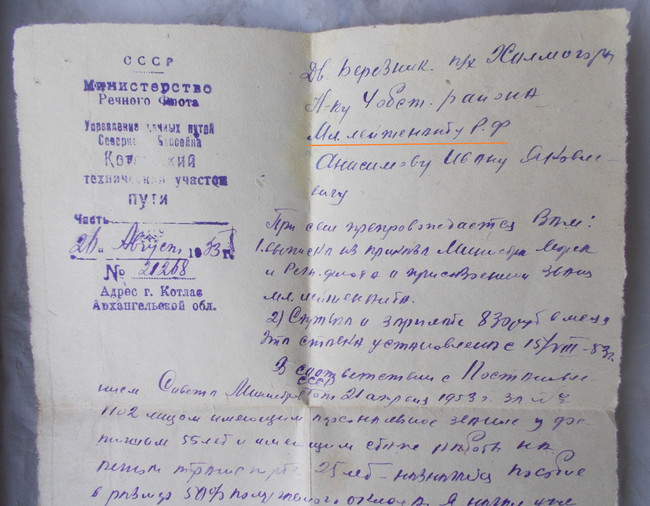 СССР
Министерство
Речного Флота
Управление речных путей
Северн Бассейна
Котласский
технический участок
пути
Часть
26 Август 1953 г.
№ 21268
Адрес г. Котлас
Архангельской обл.
Дв. Березник. п/х Холмогоры
Н-ку Обст. района
Мл. лейтенанту Р.Ф
Анисимову Ивану Яковле-
вичу
При сем препровождается Вам:
1. Выписка из приказа Министра Морск
и Речн. флота о присвоении звания
мл. лейтенанта.
2) Справка о зарплате 830 руб в месяц
эта ставка установлена с 15/VIII-53 г.
В соответствии с Постановле-
нием Совета Министров СССР от 21 апреля 1953 г. за №
лицам имеющим персональное звание
55 лет и имеющим стаж работы на
25 лет - пособие
в размере 50% получаемого оклада. Я